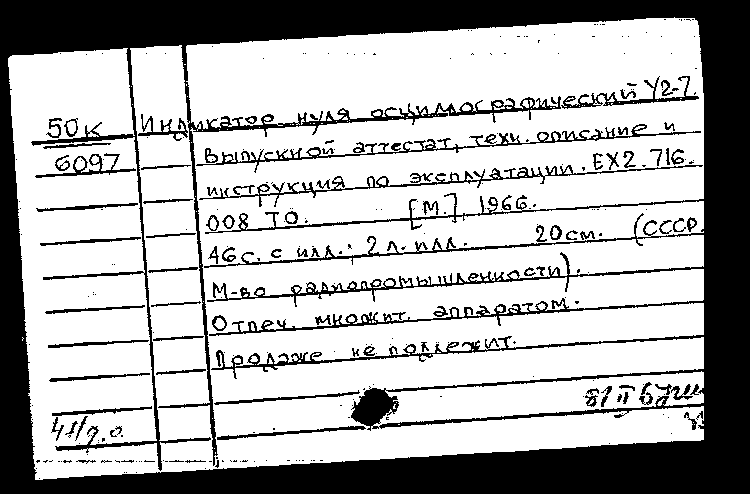 50к Индикатор нуля осциллографический У2-7.
6097 Выпускной аттестат, техн. описание и
инструкция по эксплуатации. ЕХ2.716.
008 ТО. [М.], 1966.
46 с. с илл.; 2 л. илл. 20 см. (СССР.
М-во радиопромышленности).
Отпеч. множит. аппаратом.
Продаже не подлежит.
81 II